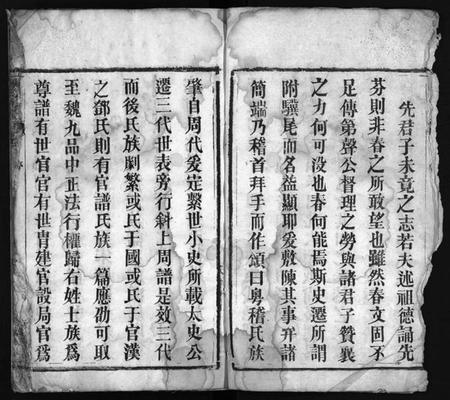 先君子未竟之志若夫述祖德誦先
芬則非春之所敢望也雖然春文固不
足傳第聲公督理之勞與諸君子贊襄
之力何可没也春何能焉斯史遷所謂
附驥尾而名益顯耶爰敷陳其事弁諸
簡端乃稽首拜手而作頌曰粵稽氏族
肇自周代爰定繫世小史所載太史公
遷三代世表旁行斜上周譜是效三代
而後氏族剧繁或氏于國或氏于官漢
之鄧氏則有官譜氏族一篇應劭可取
至魏九品中正法行權歸右姓士族為
尊譜有世官官有世冑建官設局官為